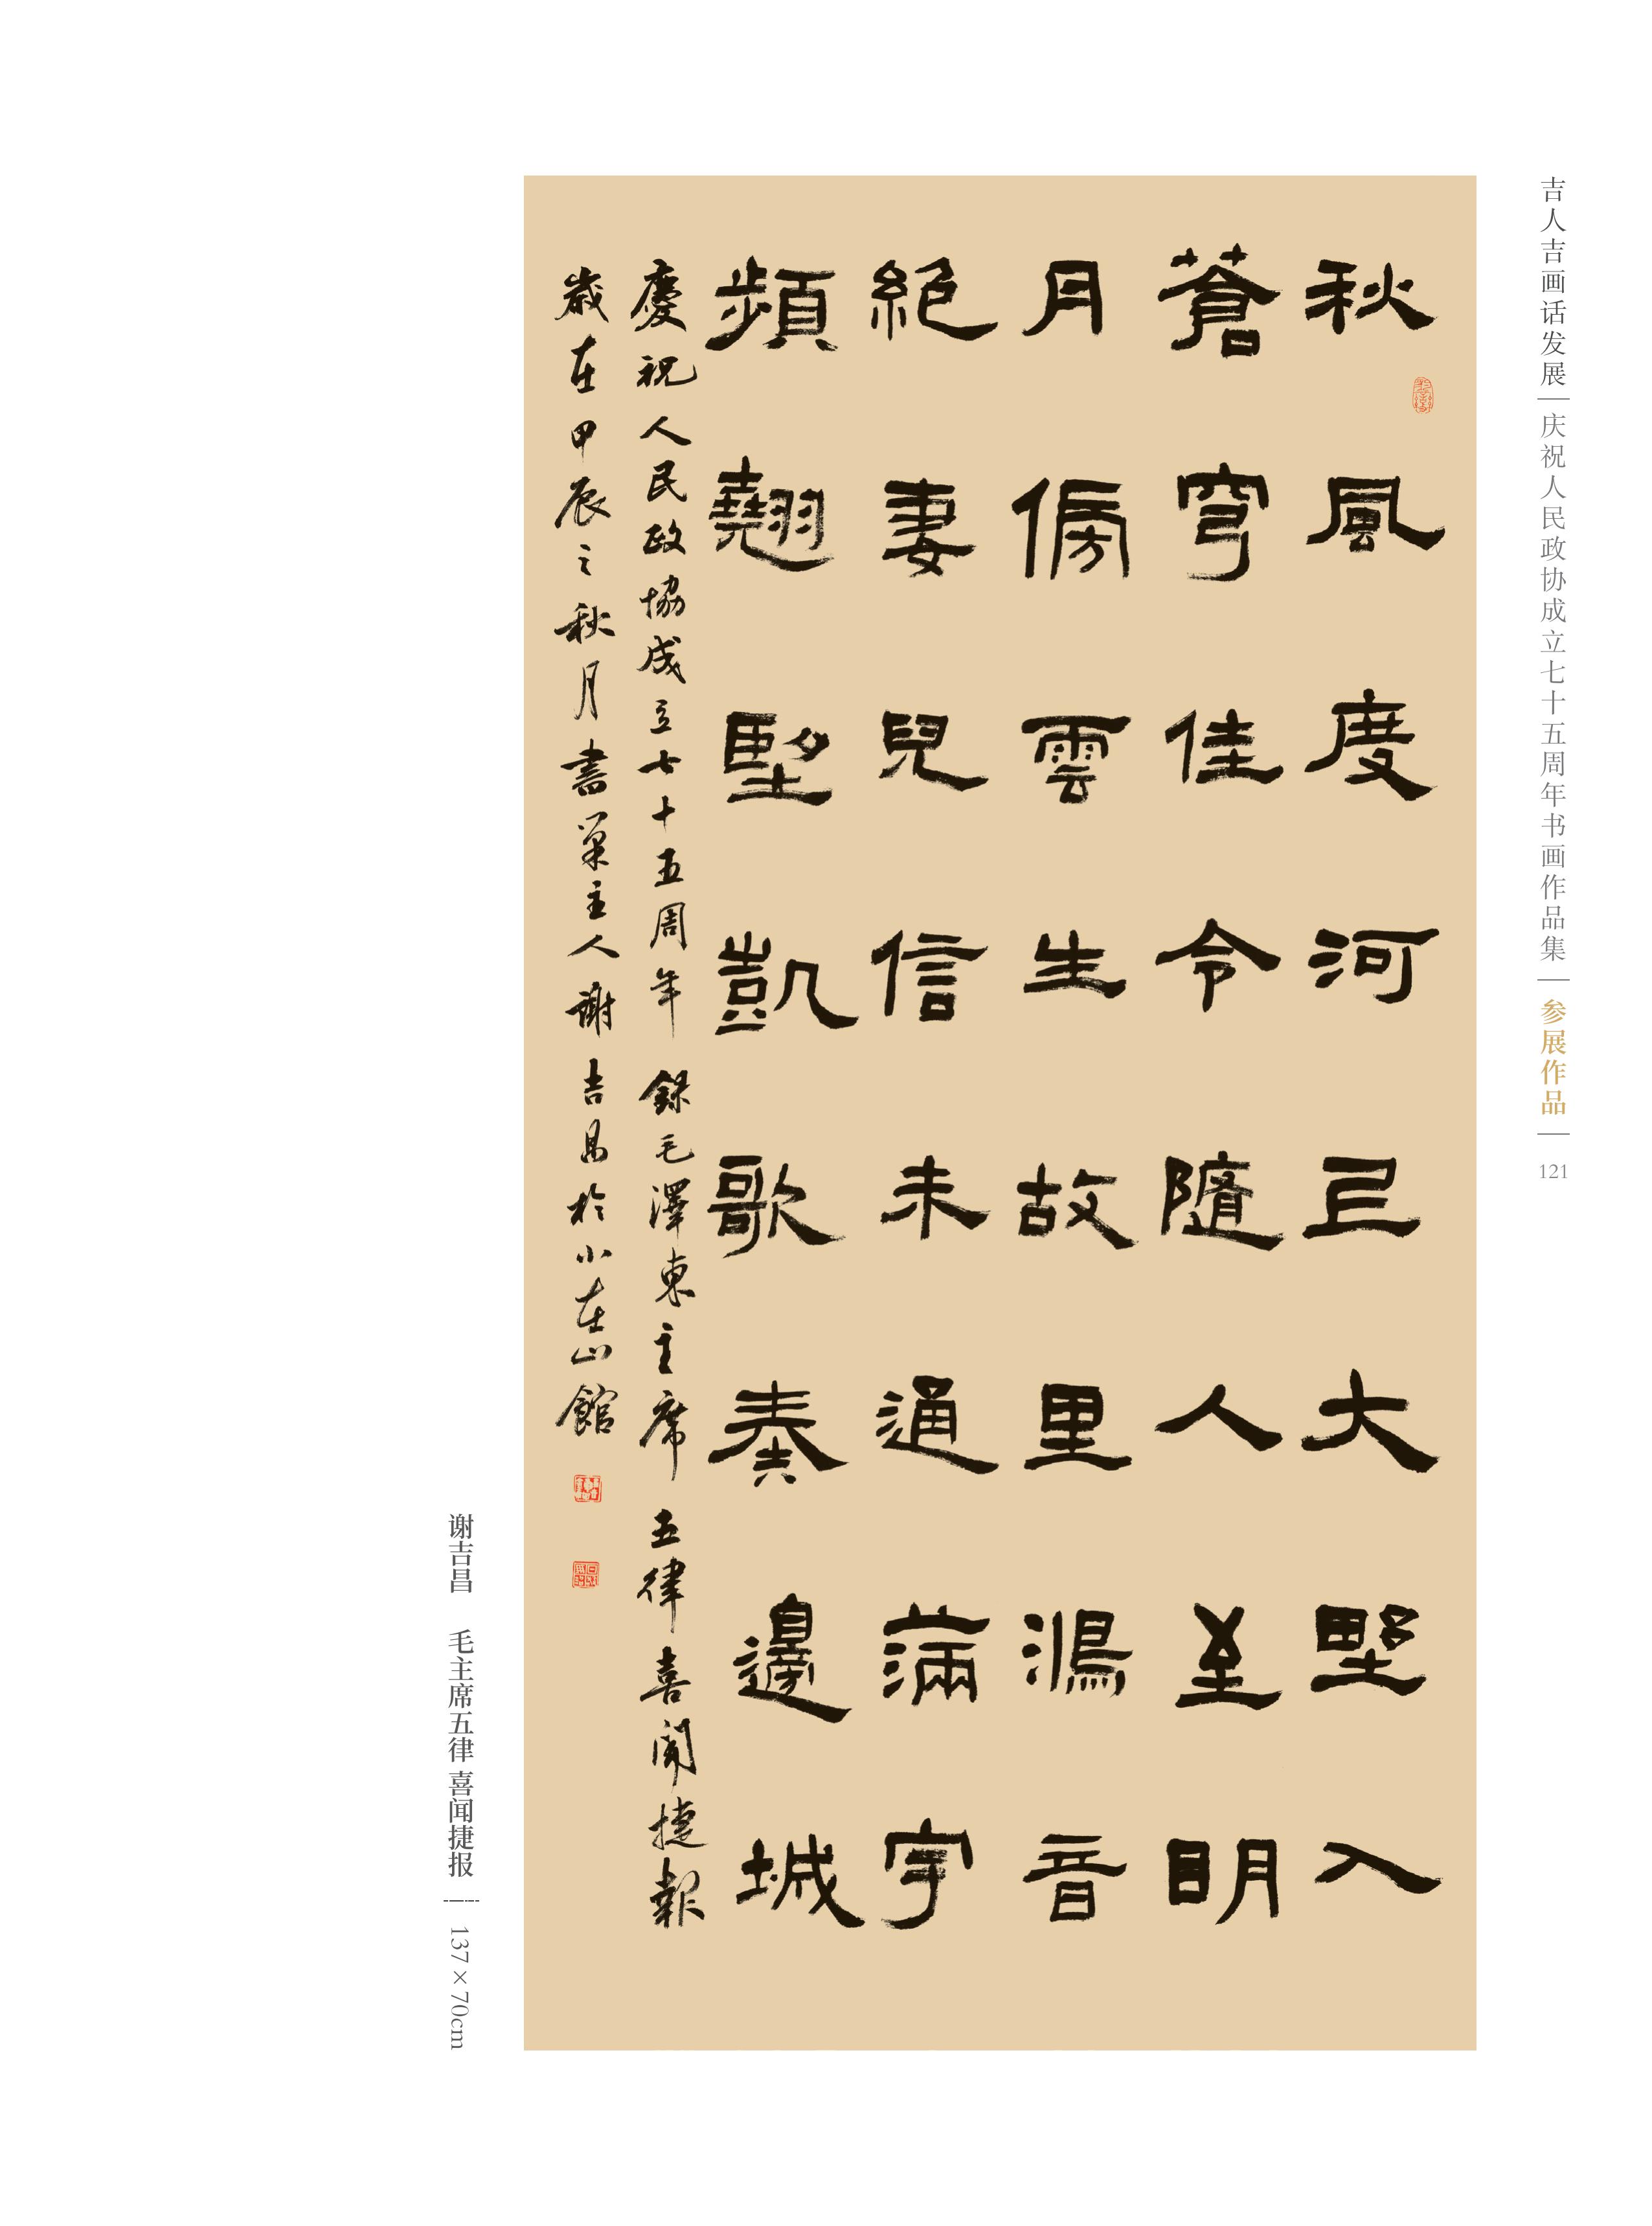 吉人吉画话发展 庆祝人民政协成立七十五周年书画作品集 参展作品 121
秋風度河已大野入
蒼穹佳令隨人至明
月傍雲生故里鴻音
絕妻兒信未通滿宇
頻翹朢凱歌奏邊城
慶祝人民政協成立七十五周年 錄毛澤東主席 五律喜聞捷報
歲在甲辰之秋月書巢主人謝吉昌於小在山館
谢吉昌 毛主席五律 喜闻捷报 137×70cm